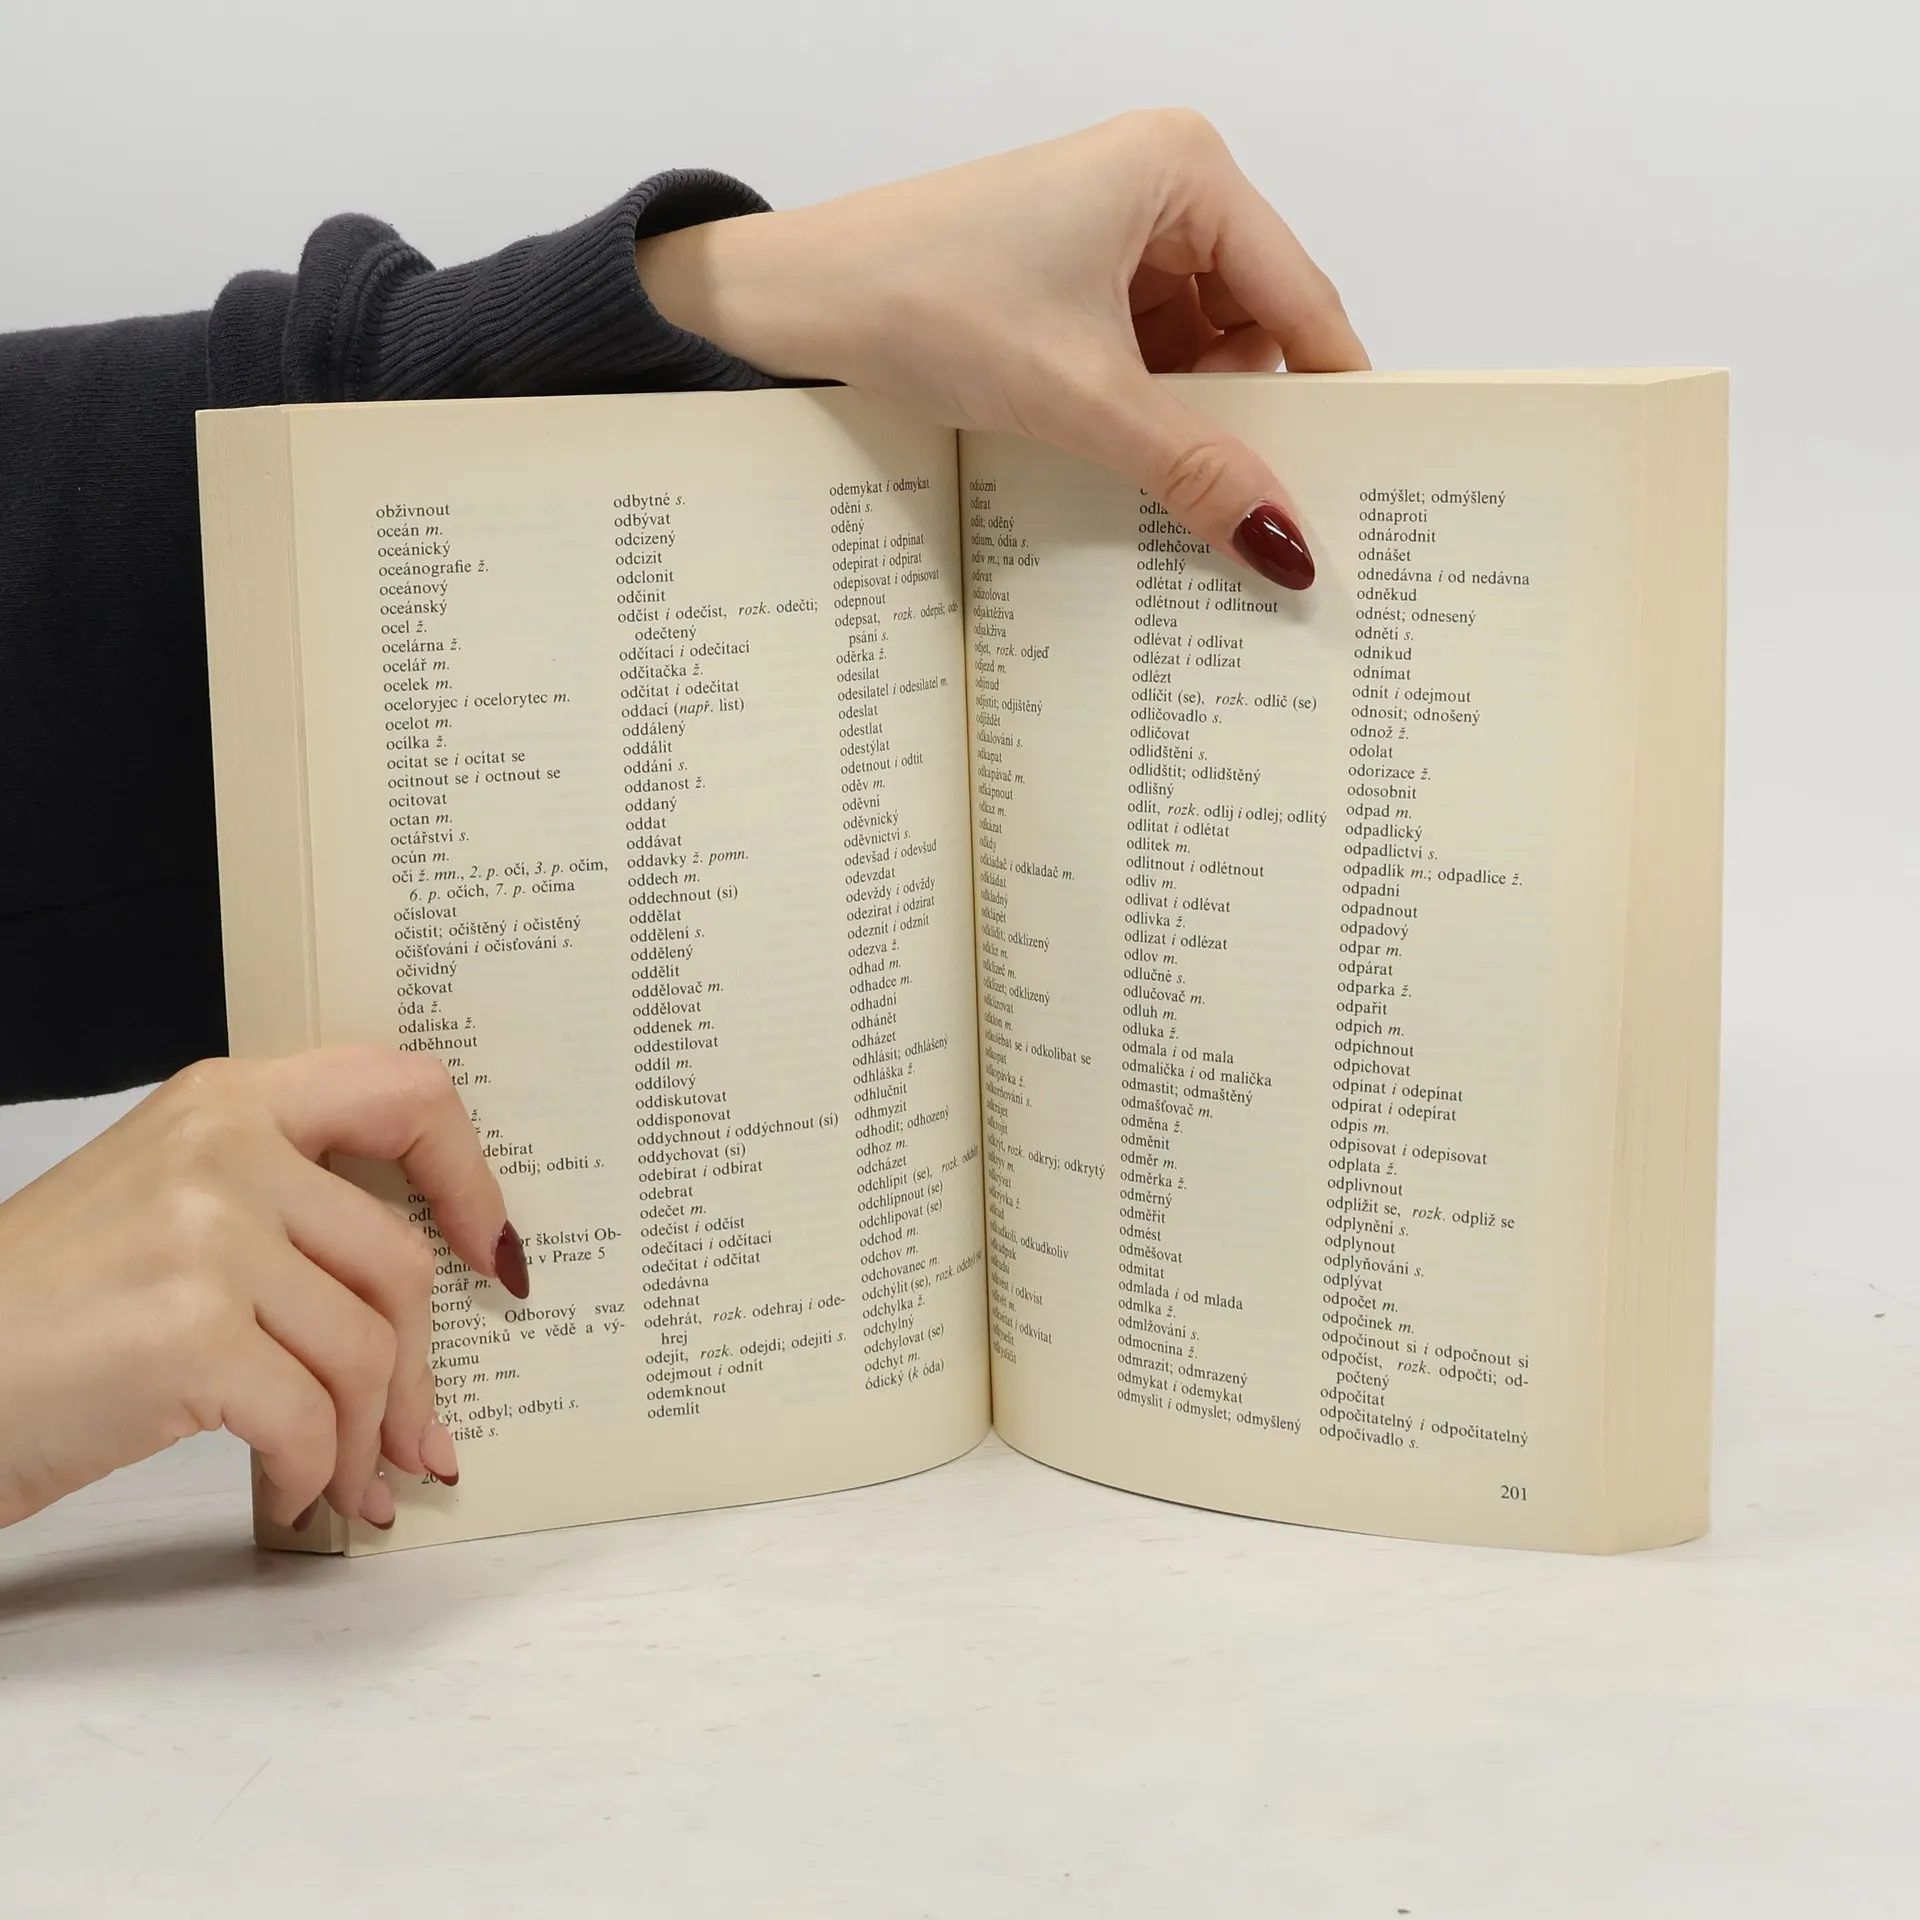 obživnout
oceán m.
oceánický
oceánografie ž.
oceánový
oceánský
ocel ž.
ocelárna ž.
ocelář m.
ocelek m.
oceloryjec i ocelorytec m.
ocelot m.
ocílka ž.
ocitat se i ocítat se
ocitnout se i octnout se
ocitovat
octan m.
octářství s.
ocún m.
oči ž. mn., 2. p. očí, 3. p. očím,
6. p. očích, 7. p. očima
očíslovat
očistit; očištěný i očistěný
očišťování i očisťování s.
očividný
očkovat
óda ž.
odaliska ž.
odběhnout
m.
m.
ž.
m.
odbij; odbití s.
školství Ob-
v Praze 5
m.
Odborový svaz
pracovníků ve vědě a vý-
zkumu
m. mn.
m.
odbyl; odbytí s.
s.
odbytné s.
odbývat
odcizený
odcizit
odclonit
odčinit
odčíst i odečíst, rozk. odečti;
odečtený
odčítací i odečítací
odčítačka ž.
odčítat i odečítat
oddací (např. list)
oddálený
oddálit
oddání s.
oddanost ž.
oddaný
oddat
oddávat
oddavky ž. pomn.
oddech m.
oddechnout (si)
oddělat
oddělení s.
oddělený
oddělit
oddělovač m.
oddělovat
oddenek m.
oddestilovat
oddíl m.
oddílový
oddiskutovat
oddisponovat
oddychnout i oddýchnout (si)
oddychovat (si)
odebírat i odbírat
odebrat
odečet m.
odečíst i odčíst
odečítací i odčítací
odečítat i odčítat
odedávna
odehnat
odehrát, rozk. odehraj i ode-
hrej
odejít, rozk. odejdi; odejití s.
odejmout i odnít
odemknout
odemlít
odemykat i odmykat
odění s.
oděný
odepínat i odpínat
odepírat i odpírat
odepisovat i odpisovat
odepnout
odepsat, rozk. odepiš; ode-
psání s.
oděrka ž.
odesílat
odesílatel i odesilatel m.
odeslat
odestlat
odestýlat
odetnout i odtít
oděv m.
oděvní
oděvnický
oděvnictví s.
odevšad i odevšud
odevzdat
odevždy i odvždy
odezírat i odzírat
odeznít i odznít
odezva ž.
odhad m.
odhadce m.
odhadní
odhánět
odházet
odhlásit; odhlášený
odhláška ž.
odhlučnit
odhmyzit
odhodit; odhozený
odhoz m.
odcházet
odchlípit (se), rozk.
odchlípnout (se)
odchlipovat (se)
odchod m.
odchov m.
odchovanec m.
odchýlit (se), rozk.
odchylka ž.
odchylný
odchylovat (se)
odchyt m.
ódický (k óda)
odiózní
odírat
odít; oděný
odium, ódia s.
odiv m.; na odiv
odívat
odizolovat
odjaktěživa
odjakživa
odjet, rozk. odjeď
odjezd m.
odjinud
odjistit; odjištěný
odjíždět
odkalování s.
odkapat
odkapávač m.
odkápnout
odkaz m.
odkázat
odkdy
odkládač i odkladač m.
odkládat
odkladný
odklápět
odklidit; odklizený
odkliz m.
odklízeč m.
odklízet; odklizený
odklizovat
odklon m.
odkolébat se i odkolíbat se
odkopat
odkopávka ž.
odkorňování s.
odkrajet
odkrojit
odkrýt, rozk. odkryj; odkrytý
odkryv m.
odkrývat
odkrývka ž.
odkud
odkudkoli, odkudkoliv
odkudpak
odkudsi
odkvést i odkvíst
odkvět m.
odkvétat i odkvítat
odlehčovat
odlehlý
odlétat i odlítat
odlétnout i odlítnout
odleva
odlévat i odlívat
odlézat i odlízat
odlézt
odlíčit (se), rozk. odlič (se)
odličovadlo s.
odličovat
odlidštění s.
odlidštit; odlidštěný
odlišný
odlít, rozk. odlij i odlej; odlitý
odlítat i odlétat
odlitek m.
odlítnout i odlétnout
odliv m.
odlívat i odlévat
odlivka ž.
odlízat i odlézat
odlov m.
odlučné s.
odlučovač m.
odluh m.
odluka ž.
odmala i od mala
odmalička i od malička
odmastit; odmaštěný
odmašťovač m.
odměna ž.
odměnit
odměr m.
odměrka ž.
odměrný
odměřit
odmést
odměšovat
odmítat
odmlada i od mlada
odmlka ž.
odmlžování s.
odmocnina ž.
odmrazit; odmrazený
odmykat i odemykat
odmyslit i odmyslet; odmyšlený
odmýšlet; odmýšlený
odnaproti
odnárodnit
odnášet
odnedávna i od nedávna
odněkud
odnést; odnesený
odnětí s.
odnikud
odnímat
odnít i odejmout
odnosit; odnošený
odnož ž.
odolat
odorizace ž.
odosobnit
odpad m.
odpadlický
odpadlictví s.
odpadlík m.; odpadlice ž.
odpadní
odpadnout
odpadový
odpar m.
odpárat
odparka ž.
odpařit
odpich m.
odpíchnout
odpichovat
odpínat i odepínat
odpírat i odepírat
odpis m.
odpisovat i odepisovat
odplata ž.
odplivnout
odplížit se, rozk. odpliž se
odplynění s.
odplynout
odplyňování s.
odplývat
odpočet m.
odpočinek m.
odpočinout si i odpočnout si
odpočíst, rozk. odpočti; od-
počtený
odpočítat
odpočitatelný i odpočítatelný
odpočívadlo s.
201